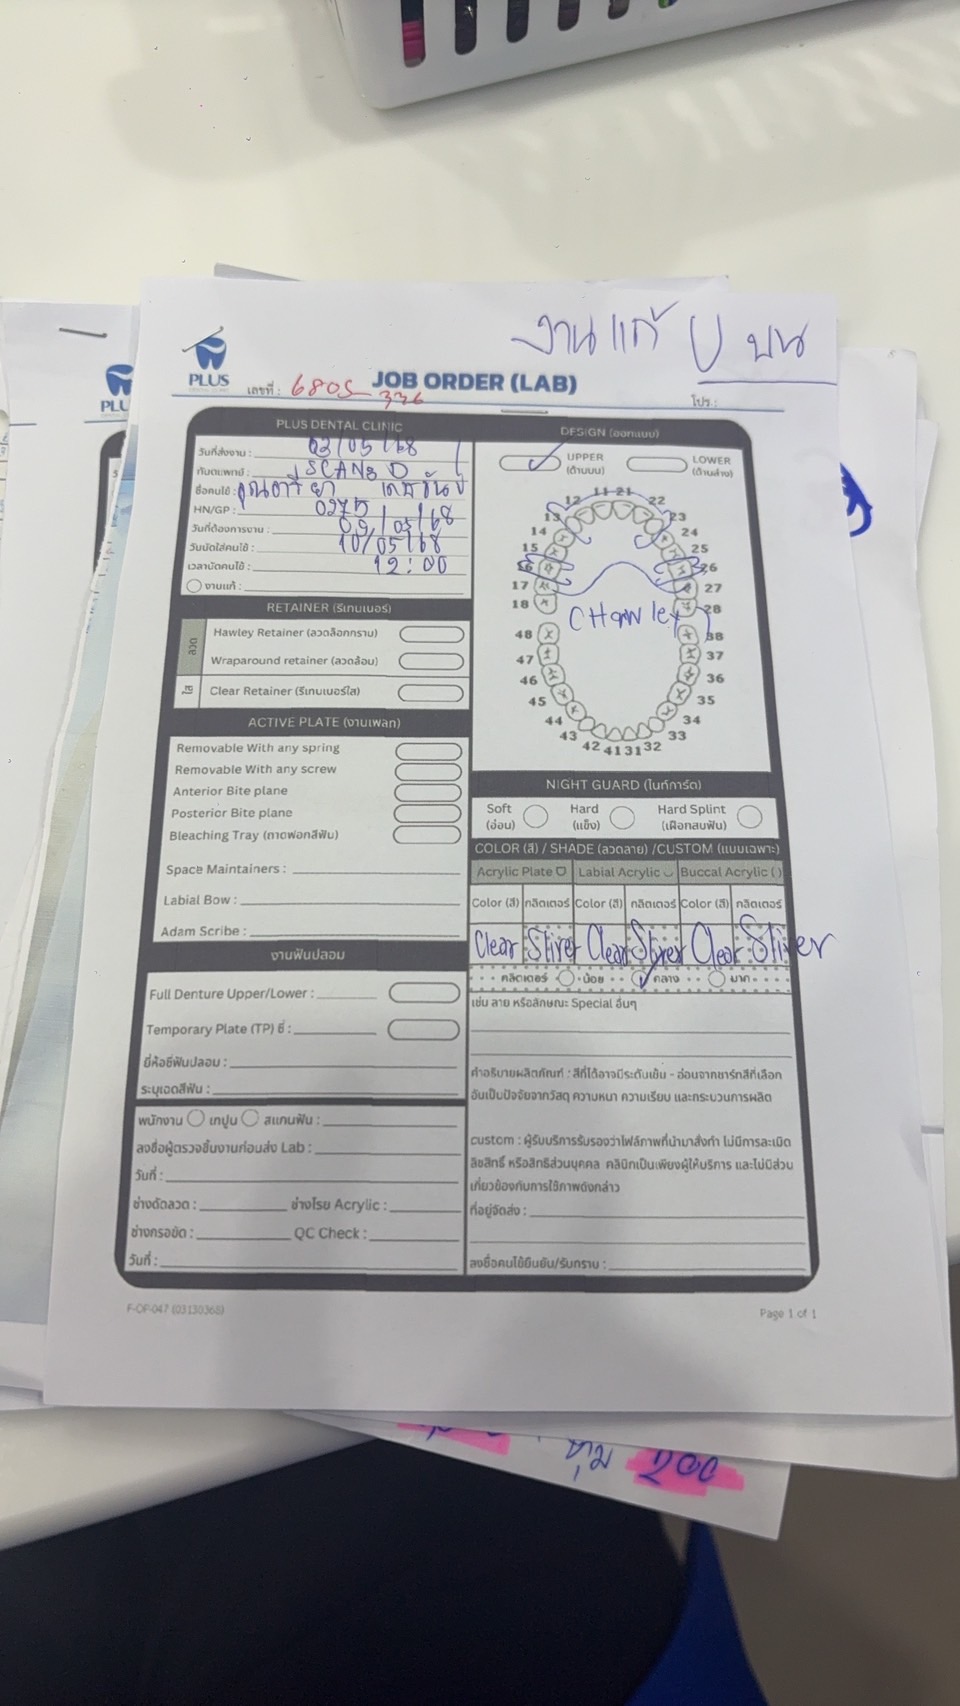 งานแก้ U บน
PLUS
DENTAL CLINIC
เลขที่ : 6805
336
JOB ORDER (LAB)
โปร.:
PLUS DENTAL CLINIC
วันที่ส่งงาน : 03/05/68
ทันตแพทย์ : SCAN
ชื่อคนไข้ : คุณ
HN/GP : 0275
วันที่ต้องการงาน : 09/05/68
วันนัดใส่คนไข้ : 10/05/68
เวลานัดคนไข้ : 12:00
งานแก้ :
RETAINER (รีเทนเนอร์)
ลวด
Hawley Retainer (ลวดล็อกกราม)
Wraparound retainer (ลวดล้อม)
ใส
Clear Retainer (รีเทนเนอร์ใส)
ACTIVE PLATE (งานเพลท)
Removable With any spring
Removable With any screw
Anterior Bite plane
Posterior Bite plane
Bleaching Tray (ถาดฟอกสีฟัน)
Space Maintainers :
Labial Bow :
Adam Scribe :
งานฟันปลอม
Full Denture Upper/Lower :
Temporary Plate (TP) ซี่ :
ยี่ห้อซี่ฟันปลอม :
ระบุเฉดสีฟัน :
พนักงาน เทปูน สแกนฟัน :
ลงชื่อผู้ตรวจชิ้นงานก่อนส่ง Lab :
วันที่ :
ช่างดัดลวด : ช่างโรย Acrylic :
ช่างกรอขัด : QC Check :
วันที่ :
DESIGN (ออกแบบ)
UPPER
(ด้านบน)
LOWER
(ด้านล่าง)
11 21
12 22
13 23
14 24
15 25
16 26
17 27
18 28
CHawley
48 38
47 37
46 36
45 35
44 34
43 33
42 41 31 32
NIGHT GUARD (ไนท์การ์ด)
Soft
(อ่อน)
Hard
(แข็ง)
Hard Splint
(เฝือกสบฟัน)
COLOR (สี) / SHADE (ลวดลาย) /CUSTOM (แบบเฉพาะ)
Acrylic Plate Labial Acrylic Buccal Acrylic ( )
Color (สี) กลิตเตอร์ Color (สี) กลิตเตอร์ Color (สี) กลิตเตอร์
Clear Sliver Clear Sliver Clear Sliver
กลิตเตอร์ น้อย กลาง มาก
เช่น ลาย หรือลักษณะ Special อื่นๆ
คำอธิบายผลิตภัณฑ์ : สีที่ได้อาจมีระดับเข้ม - อ่อนจากชาร์ทสีที่เลือก
อันเป็นปัจจัยจากวัสดุ ความหนา ความเรียบ และกระบวนการผลิต
custom : ผู้รับบริการรับรองว่าไฟล์ภาพที่นำมาสั่งทำ ไม่มีการละเมิด
ลิขสิทธิ์ หรือสิทธิส่วนบุคคล คลินิกเป็นเพียงผู้ให้บริการ และไม่มีส่วน
เกี่ยวข้องกับการใช้ภาพดังกล่าว
ที่อยู่จัดส่ง :
ลงชื่อคนไข้ยืนยัน/รับทราบ :
F-OF-047 (03130368)
Page 1 of 1
200